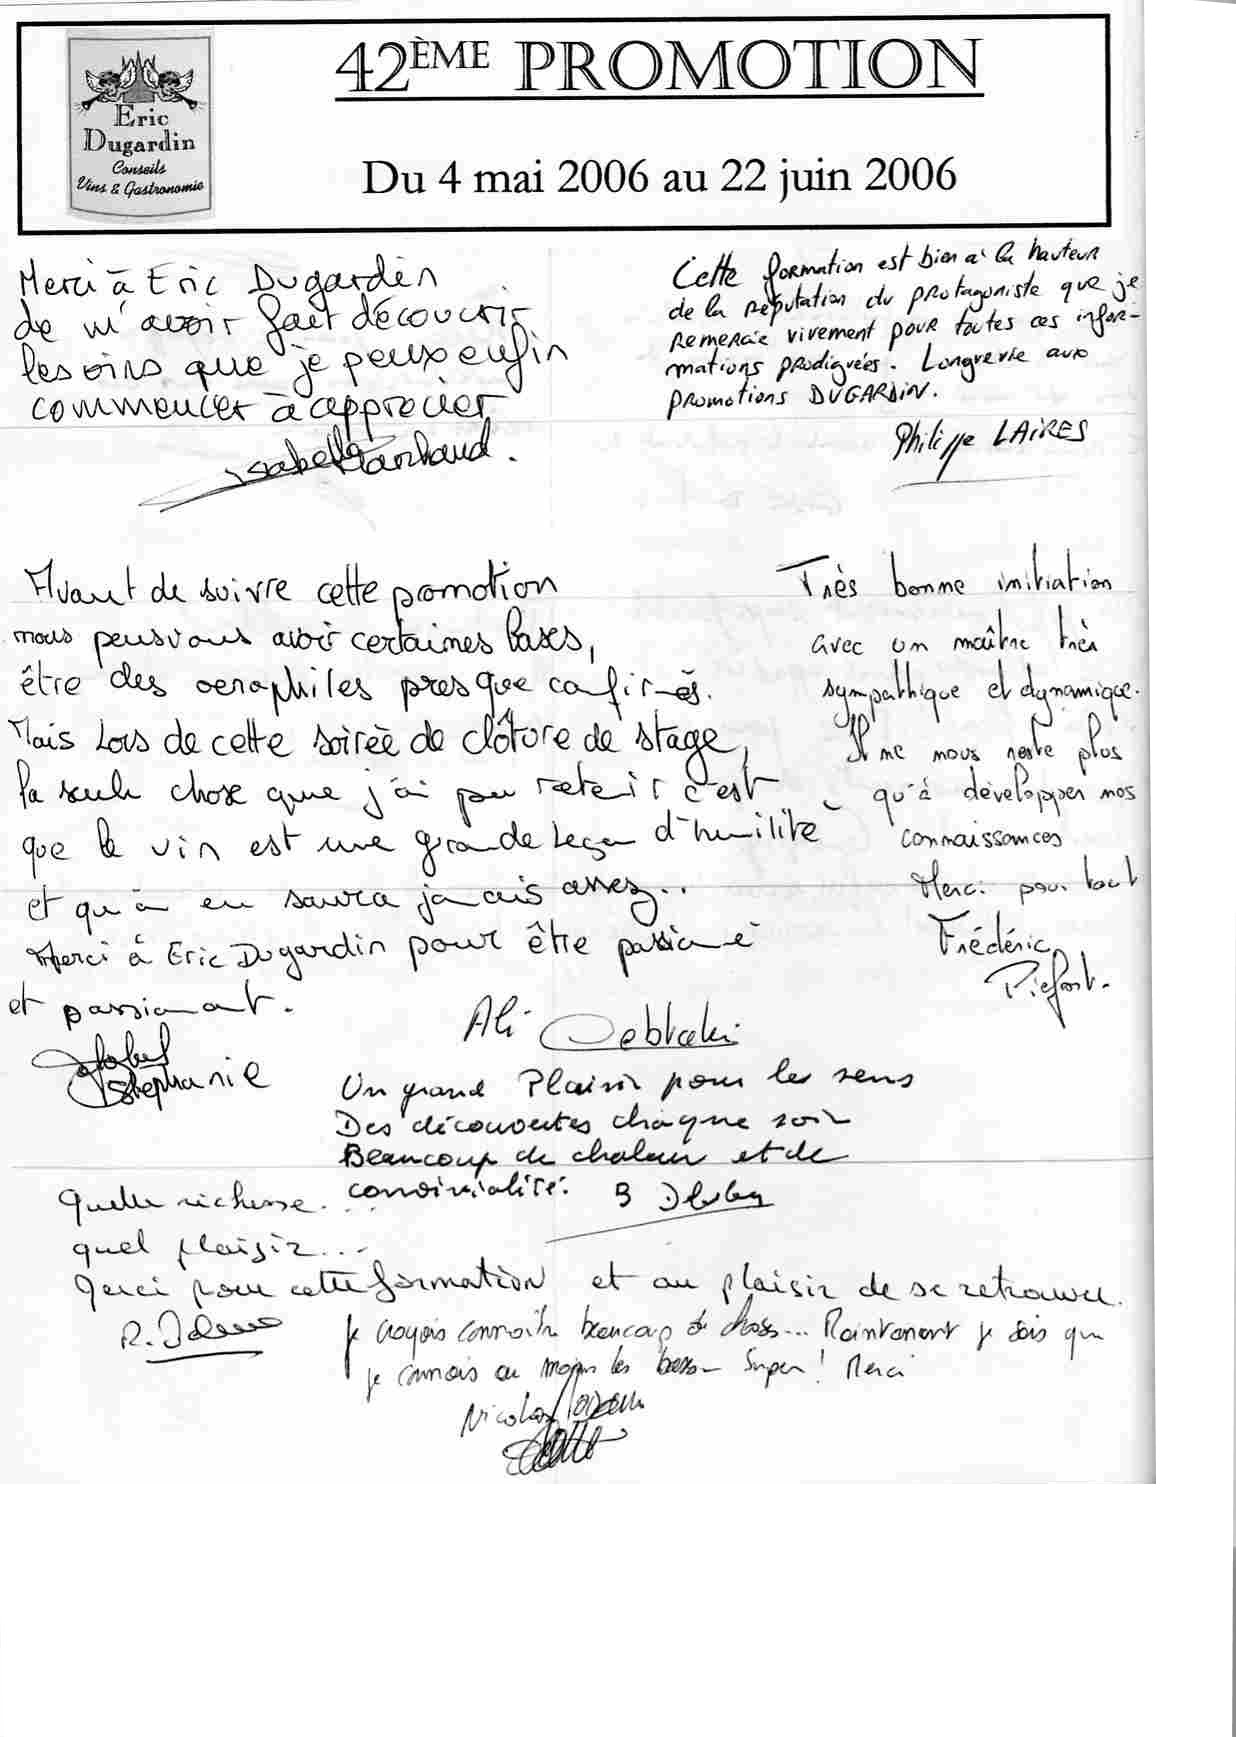 42ÈME PROMOTION
Du 4 mai 2006 au 22 juin 2006
Eric
Dugardin
Conseils
Vins & Gastronomie
Merci à Eric Dugardin
de m'avoir fait découvrir
les vins que je peux enfin
commencer à apprécier
Isabelle
Cette formation est bien à la hauteur
de la réputation du protagoniste que je
remercie vivement pour toutes ces infor-
mations prodiguées. Longue vie aux
promotions DUGARDIN.
Philippe LAIRES
Avant de suivre cette promotion
nous pensions avoir certaines bases,
être des oenophiles presque confirmés.
Mais Lors de cette soirée de clôture de stage,
la seule chose que j'ai pu retenir c'est
que le vin est une grande leçon d'humilité
et qu'on en saura jamais assez...
Merci à Eric Dugardin pour être passionné
et passionant.
Stéphanie
Très bonne initiation
avec un maître très
sympathique et dynamique.
Il ne nous reste plus
qu'à développer nos
connaissances
Merci pour tout
Frédéric
Ali
Un grand Plaisir pour les sens
Des découvertes chaque soir
Beaucoup de chaleur et de
convivialité.
B
Quelle richesse...
quel plaisir...
Merci pour cette formation et au plaisir de se retrouver.
R.
Je croyais connaître beaucoup de choses... Maintenant je sais que
je connais au moins les bases Super! Merci
Nicolas